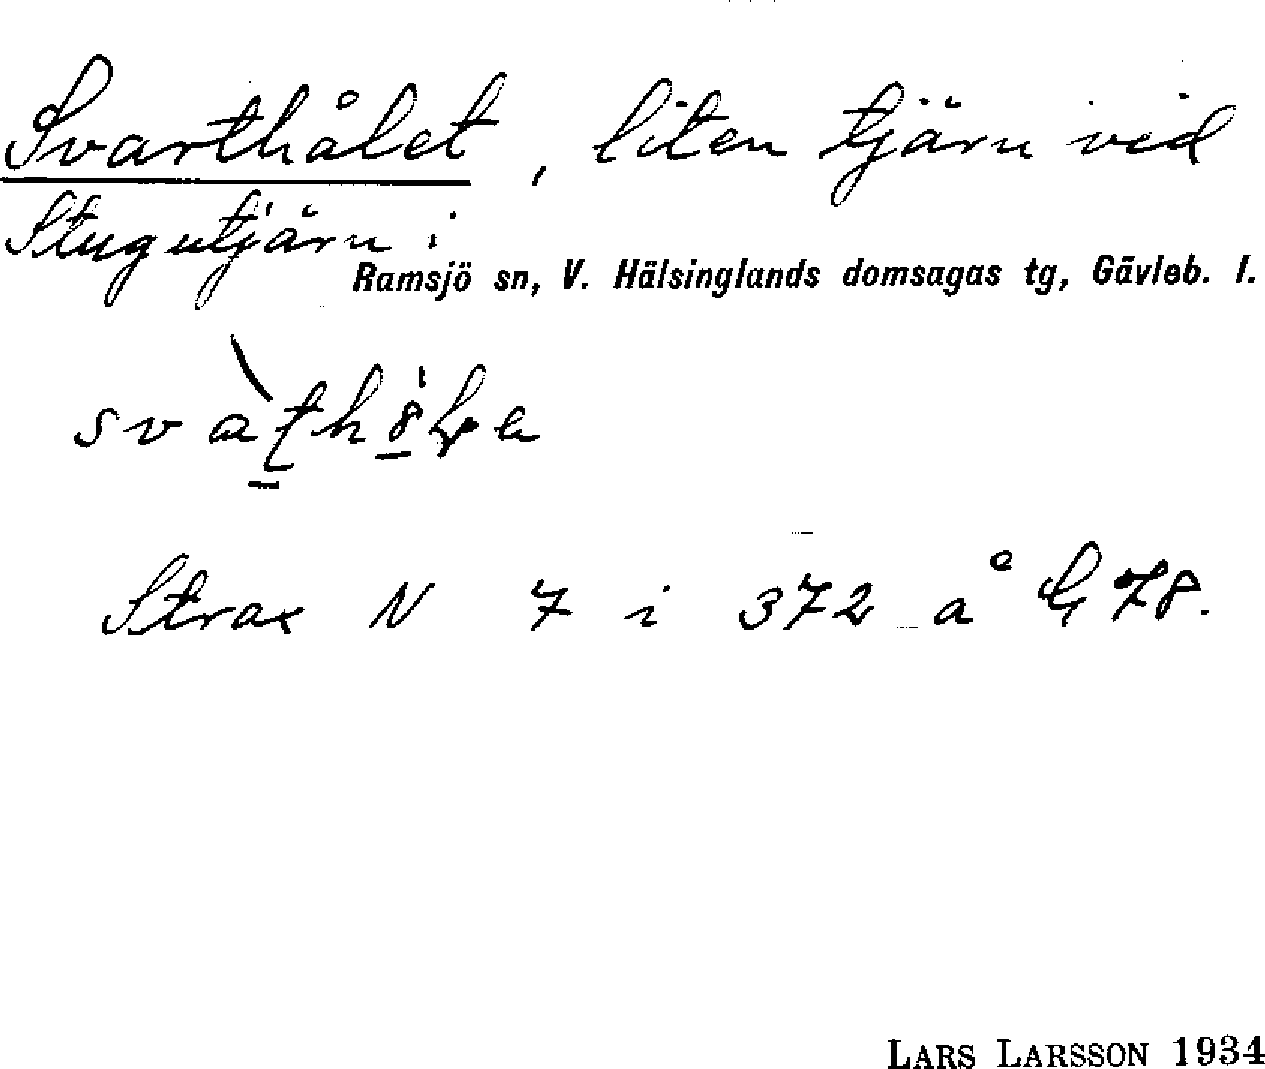 Svarthålet, liten tjärn vid
Stugutjärn i
Ramsjö sn, V. Hälsinglands domsagas tg, Gävleb. l.
Strax N 7 i 372 å G 78.
LARS LARSSON 1934